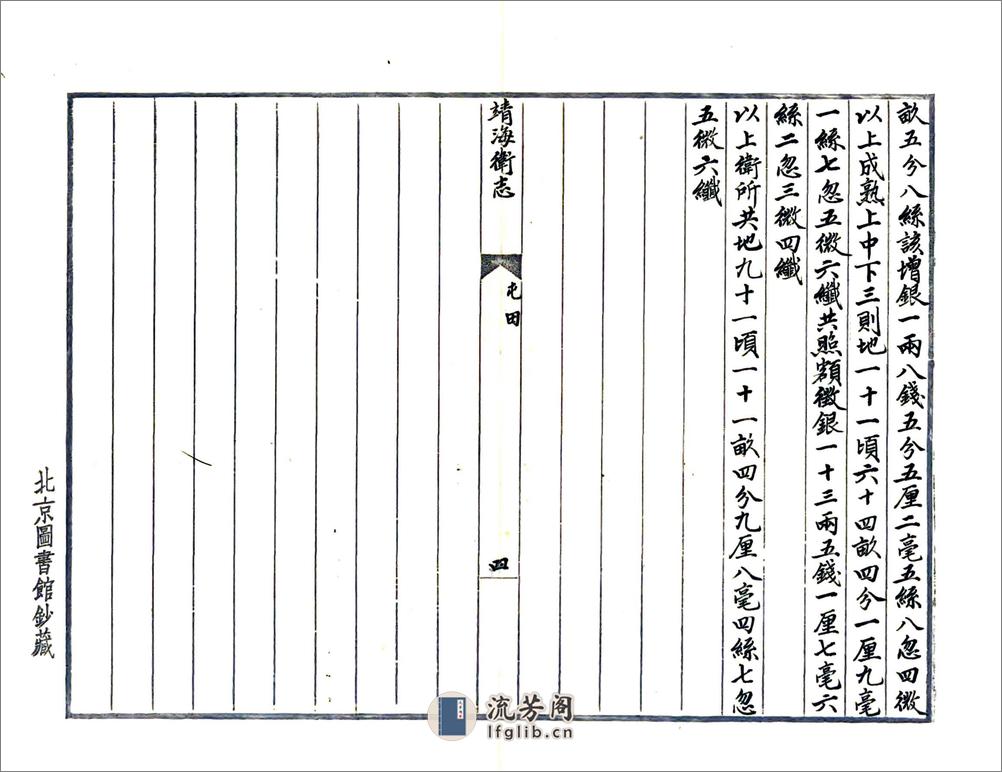 畝五分八絲該增銀一兩八錢五分五厘二毫五絲八忽四微
以上成熟上中下三則地一十一頃六十四畝四分一厘九毫
一絲七忽五微六纖共照額徵銀一十三兩五錢一厘七毫六
絲二忽三微四纖
以上衛所共地九十一頃一十一畝四分九厘八毫四絲七忽
五微六纖
靖海衛志
屯田
四
北京圖書館鈔藏
流芳阁
lfglib.cn